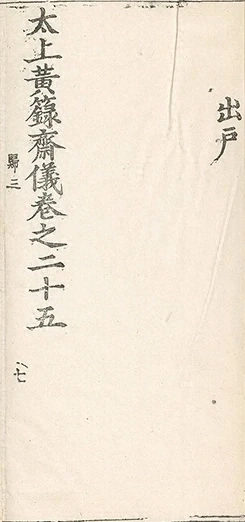 出戶
太上黃籙齋儀卷之二十五
七